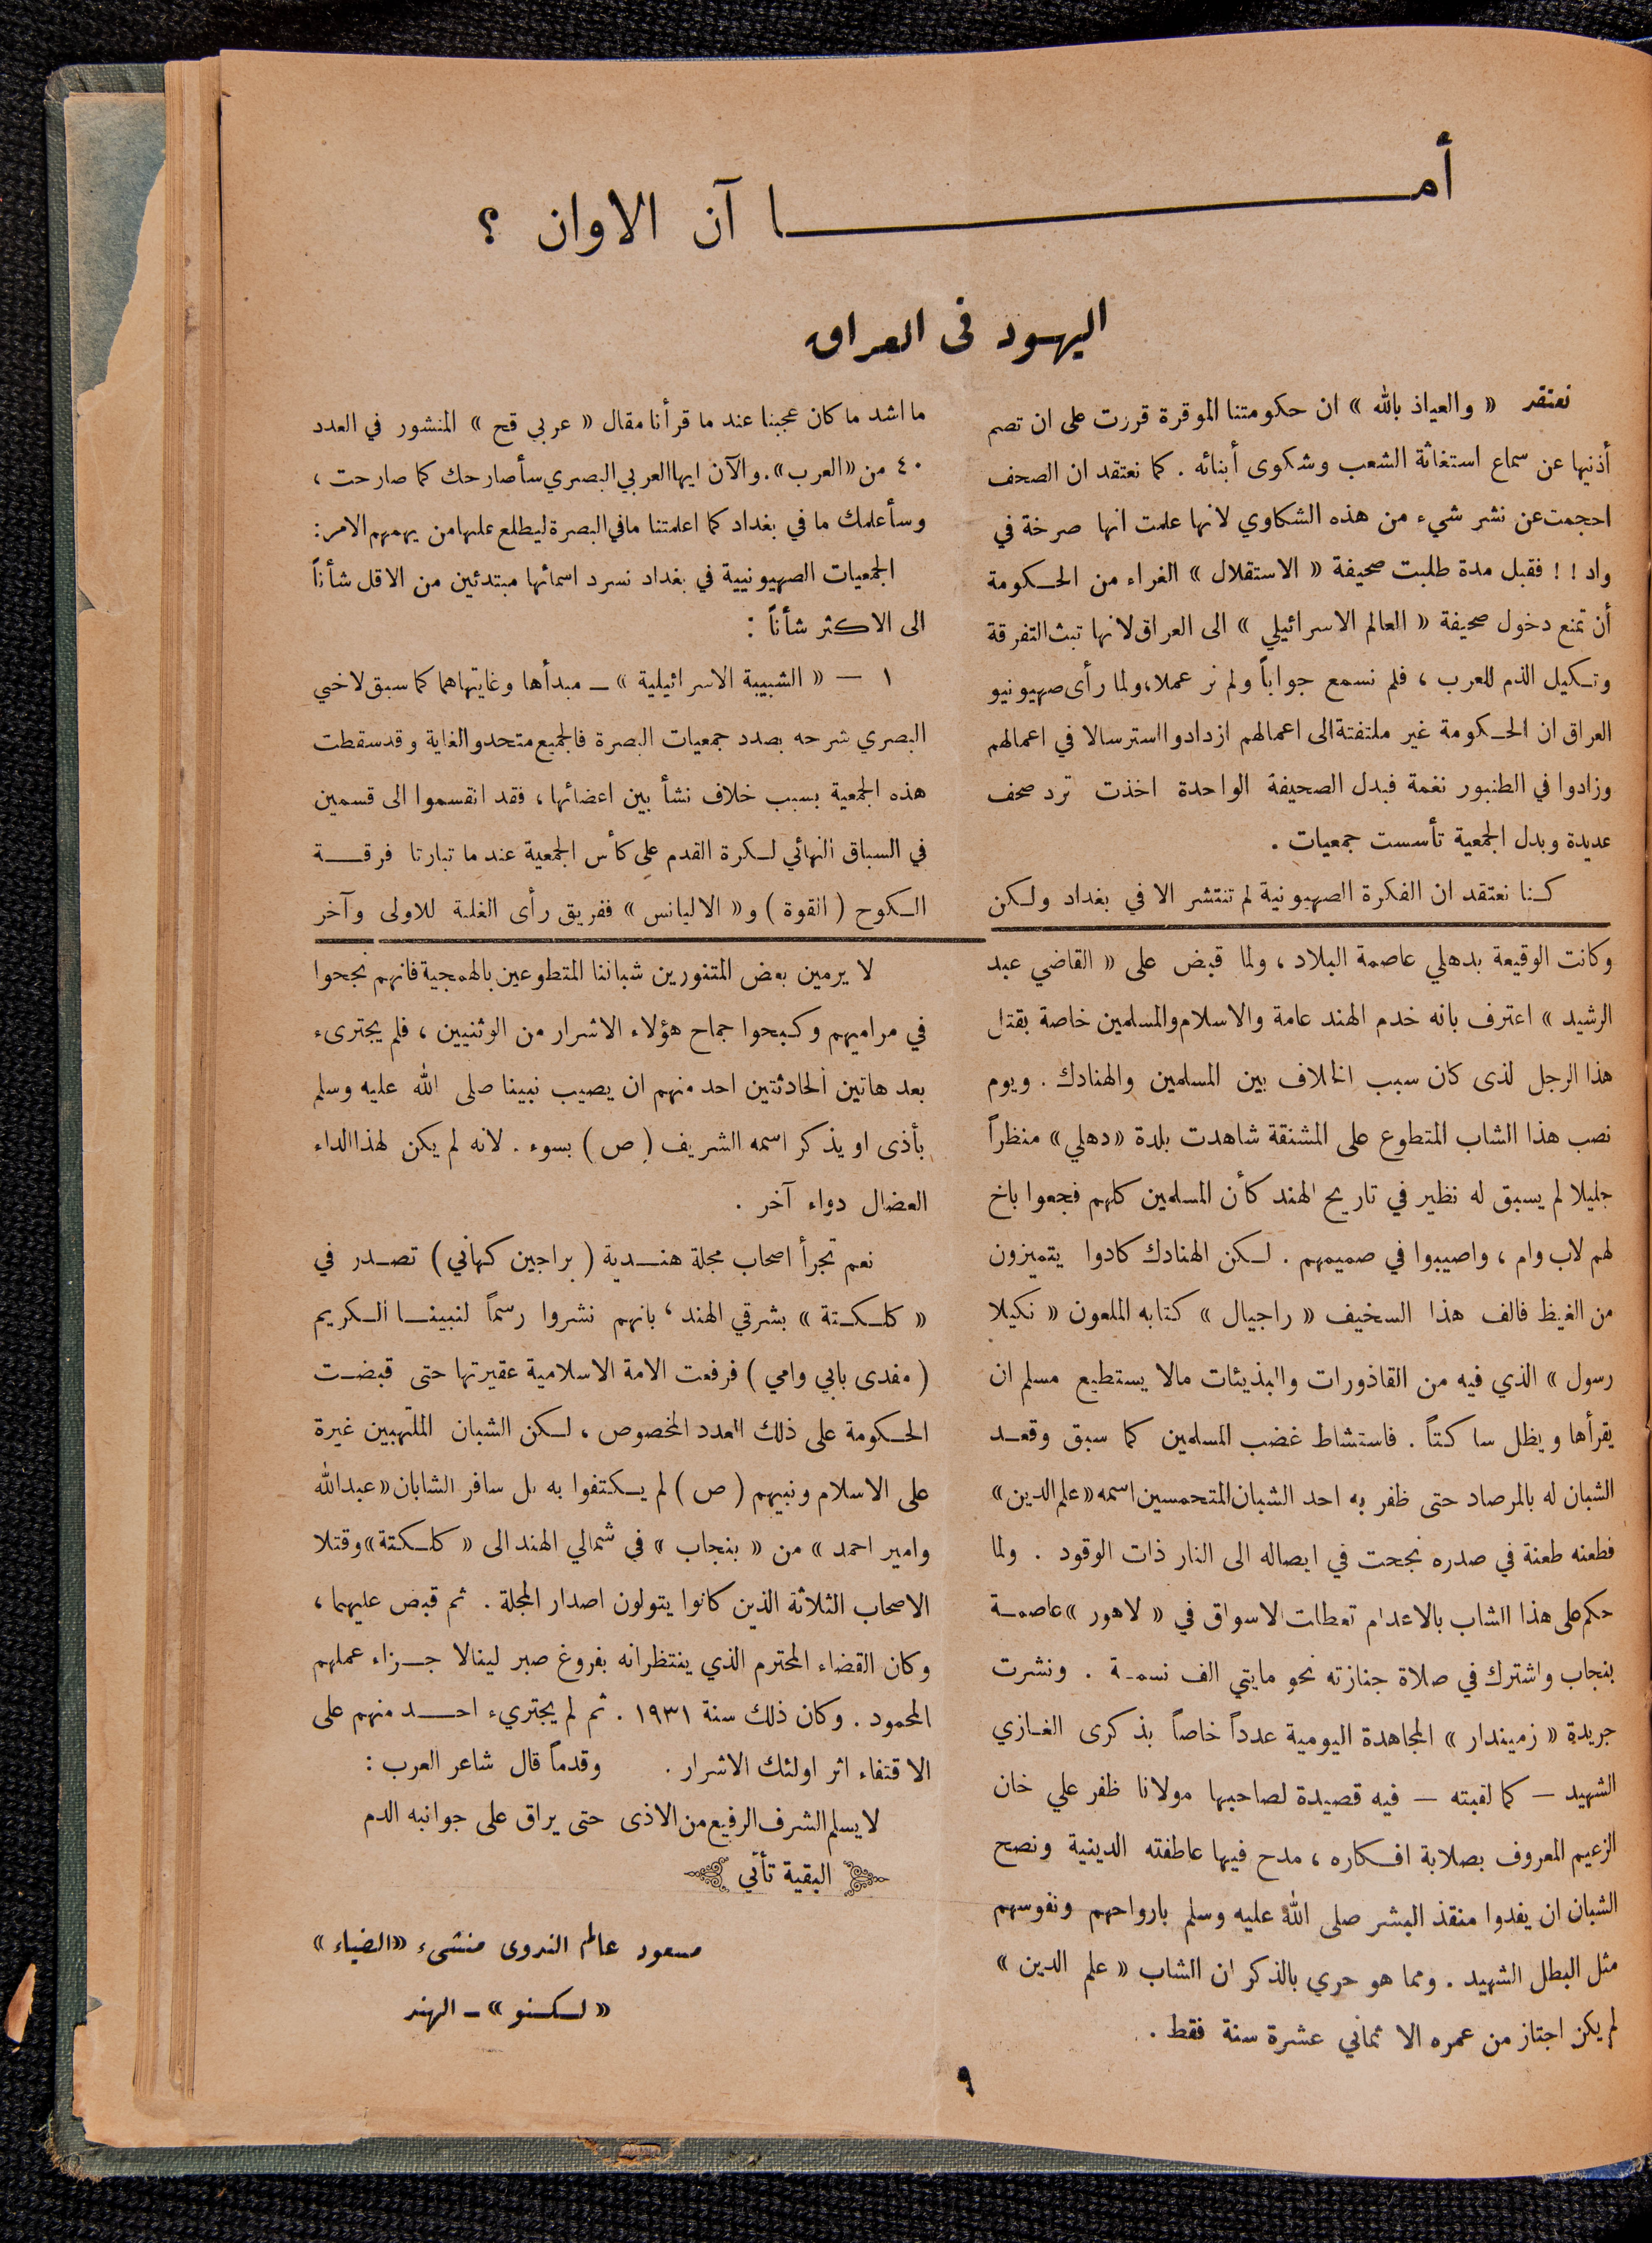 أمـــا آن الاوان ؟
اليهود فى العراق
نعتقد « والعياذ بالله » ان حكومتنا الموقرة قررت على ان تصم
أذنيها عن سماع استغاثة الشعب وشكوى أبنائه . كما نعتقد ان الصحف
احجمت عن نشر شيء من هذه الشكاوي لانها علمت انها صرخة في
واد ! ! فقبل مدة طلبت صحيفة « الاستقلال » الغراء من الحكومة
أن تمنع دخول صحيفة « العالم الاسرائيلي » الى العراق لانها تبث التفرقة
وتكيل الذم للعرب ، فلم نسمع جواباً ولم نر عملا، ولما رأى صهيونيو
العراق ان الحكومة غير ملتفتة الى اعمالهم ازدادوا استرسالا في اعمالهم
وزادوا في الطنبور نغمة فبدل الصحيفة الواحدة اخذت ترد صحف
عديدة وبدل الجمعية تأسست جمعيات .
كنا نعتقد ان الفكرة الصهيونية لم تنتشر الا في بغداد ولكن
ما اشد ما كان عجبنا عند ما قرأنا مقال « عربي قح » المنشور في العدد
٤٠ من «العرب» . والآن ايها العربي البصري سأصارحك كما صارحت ،
وسأعلمك ما في بغداد كما اعلمتنا مافي البصرة ليطلع عليها من يهمهم الامر :
الجمعيات الصهيونية في بغداد نسرد اسمائها مبتدئين من الاقل شأناً
الى الاكثر شأناً :
١ — « الشبيبة الاسرائيلية » — مبدأها وغايتها هما كما سبق لاخي
البصري شرحه بصدد جمعيات البصرة فالجميع متحدو الغاية وقد سقطت
هذه الجمعية بسبب خلاف نشأ بين اعضائها ، فقد انقسموا الى قسمين
في السباق النهائي لكرة القدم على كأس الجمعية عند ما تبارتا فرقة
الكوح ( القوة ) و« الاليانس » ففريق رأى الغلبة للاولى وآخر
وكانت الوقيعة بدهلي عاصمة البلاد ، ولما قبض على « القاضي عبد
الرشيد » اعترف بانه خدم الهند عامة والاسلام والمسلمين خاصة بقتل
هذا الرجل لذى كان سبب الخلاف بين المسلمين والهنادك . ويوم
نصب هذا الشاب المتطوع على المشنقة شاهدت بلدة «دهلي» منظراً
جليلا لم يسبق له نظير في تاريخ الهند كأن المسلمين كلهم فجعوا باخ
لهم لاب وام ، واصيبوا في صميمهم . لكن الهنادك كادوا يتميزون
من الغيظ فالف هذا السخيف « راجيال » كتابه الملعون « نكيلا
رسول » الذي فيه من القاذورات والبذيئات مالا يستطيع مسلم ان
يقرأها ويظل ساكتاً . فاستشاط غضب المسلمين كما سبق وقعد
الشبان له بالمرصاد حتى ظفر به احد الشبان المتحمسين اسمه «علم الدين»
فطعنه طعنة في صدره نجحت في ايصاله الى النار ذات الوقود . ولما
حكم على هذا الشاب بالاعدام تعطلت الاسواق في « لاهور » عاصمة
بنجاب واشترك في صلاة جنازته نحو مايتي الف نسمة . ونشرت
جريدة « زميندار » المجاهدة اليومية عدداً خاصاً بذكرى الغازي
الشهيد — كما لقبته — فيه قصيدة لصاحبها مولانا ظفر علي خان
الزعيم المعروف بصلابة افكاره ، مدح فيها عاطفته الدينية ونصح
الشبان ان يفدوا منقذ البشر صلى الله عليه وسلم بارواحهم ونفوسهم
مثل البطل الشهيد . ومما هو حري بالذكر ان الشاب « علم الدين »
لم يكن اجتاز من عمره الا ثماني عشرة سنة فقط .
لا يرمين بعض المتنورين شباننا المتطوعين بالهمجية فانهم نجحوا
في مراميهم وكبحوا جماح هؤلاء الاشرار من الوثنيين ، فلم يجترىء
بعد هاتين الحادثتين احد منهم ان يصيب نبينا صلى الله عليه وسلم
بأذى او يذكر اسمه الشريف ( ص ) بسوء . لانه لم يكن لهذا الداء
العضال دواء آخر .
نعم تجرأ اصحاب مجلة هندية ( براجين كهاني ) تصدر في
« كلكتة » بشرقي الهند ، بانهم نشروا رسماً لنبينا الكريم
( مفدى بابي وامي ) فرفعت الامة الاسلامية عقيرتها حتى قبضت
الحكومة على ذلك العدد المخصوص ، لكن الشبان الملتهبين غيرة
على الاسلام ونبيهم ( ص ) لم يكتفوا به بل سافر الشابان «عبدالله
وامير احمد » من « بنجاب » في شمالي الهند الى « كلكتة » وقتلا
الاصحاب الثلاثة الذين كانوا يتولون اصدار المجلة . ثم قبض عليهما ،
وكان القضاء المحترم الذي ينتظرانه بفروغ صبر لينالا جزاء عملهم
المحمود . وكان ذلك سنة ١٩٣١ . ثم لم يجتريء احد منهم على
الاقتفاء اثر اولئك الاشرار . وقدماً قال شاعر العرب :
لا يسلم الشرف الرفيع من الاذى حتى يراق على جوانبه الدم
البقية تأتي
مسعود عالم الندوى منشىء «الضياء»
« لكنو » – الهند
٩